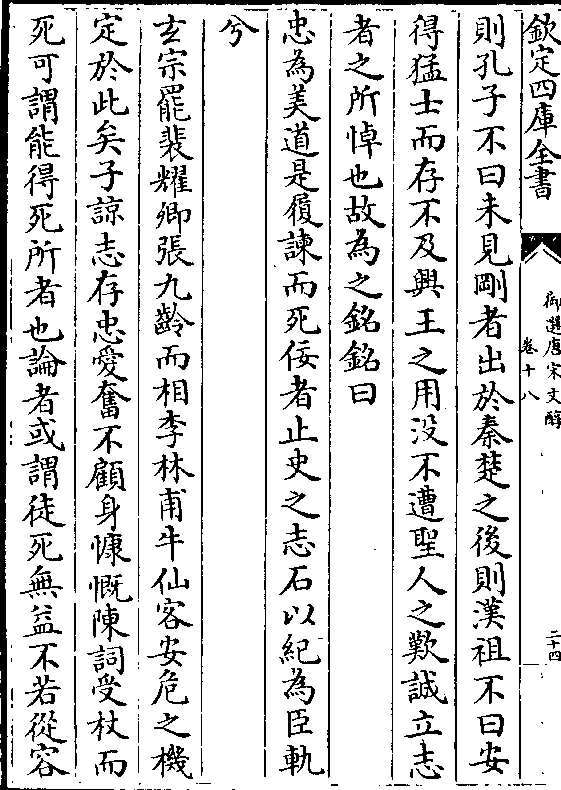 欽定四庫全書
御選唐宋文醇
卷十八
二十四
則孔子不曰未見剛者出於秦楚之後則漢祖不曰安
得猛士而存不及興王之用没不遭聖人之歎誠立志
者之所悼也故為之銘銘曰
忠為美道是履諫而死佞者止史之志石以紀為臣軌
兮
玄宗罷裴耀卿張九齡而相李林甫牛仙客安危之機
定於此矣子諒志存忠愛奮不顧身慷慨陳詞受杖而
死可謂能得死所者也論者或謂徒死無益不若從容